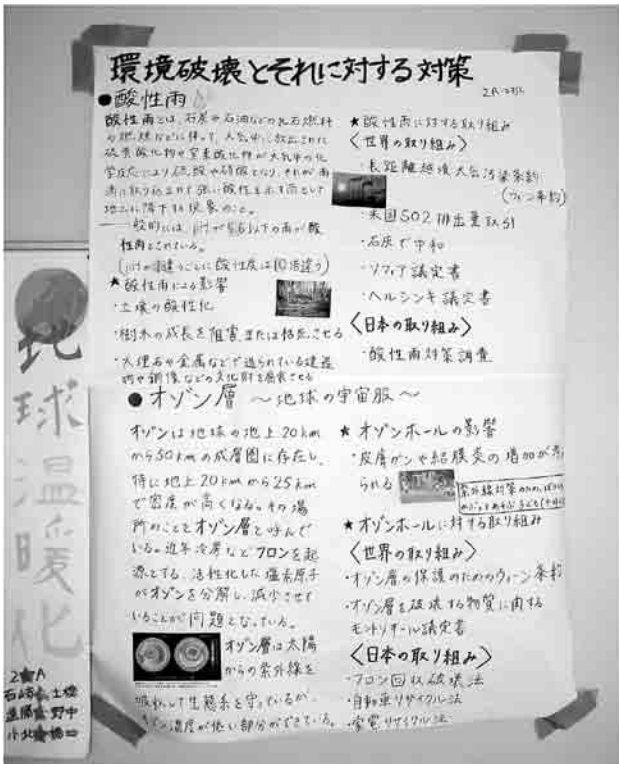 環境破壊とそれに対する対策
●酸性雨
酸性雨とは、石炭や石油などの化石燃料
の燃焼などに伴って、大気中に放出された
硫黄酸化物や窒素酸化物が大気中の化
学反応により硫酸や硝酸となり、それが雨
滴に取り込まれて強い酸性を示す雨として
地上に降下する現象のこと。
一般的には、pHが5.6以下の雨が酸
性雨とされている。
(pHが1違うごとに酸性度は10倍違う)
★酸性雨による影響
・土壌の酸性化
・樹木の成長を阻害または枯死させる
・大理石や金属などで造られている建造
物や銅像などの文化財を腐食させる
★酸性雨に対する取り組み
〈世界の取り組み〉
・長距離越境大気汚染条約
(ウィーン条約)
・米国SO2排出量取引
・石灰で中和
・ソフィア議定書
・ヘルシンキ議定書
〈日本の取り組み〉
・酸性雨対策調査
●オゾン層 ～地球の宇宙服～
オゾンは地球の地上20km
から50kmの成層圏に存在し、
特に地上20kmから25km
で密度が高くなる。その場
所のことをオゾン層と呼んで
いる。近年冷房などフロンを起
源とする、活性化した塩素原子
がオゾンを分解し、減少させて
いることが問題となっている。
オゾン層は太陽
からの紫外線を
吸収して生態系を守っているが、
濃度が低い部分ができている。
★オゾンホールの影響
・皮膚ガンや結膜炎の増加が考え
られる
紫外線対策のため、ぼうしを
★オゾンホールに対する取り組み
〈世界の取り組み〉
・オゾン層の保護のためのウィーン条約
・オゾン層を破壊する物質に関する
モントリオール議定書
〈日本の取り組み〉
・フロン回収破壊法
・自動車リサイクル法
・家電リサイクル法
地球温暖化
2★A
石崎★土橋
遠藤★野中
小北★橋口